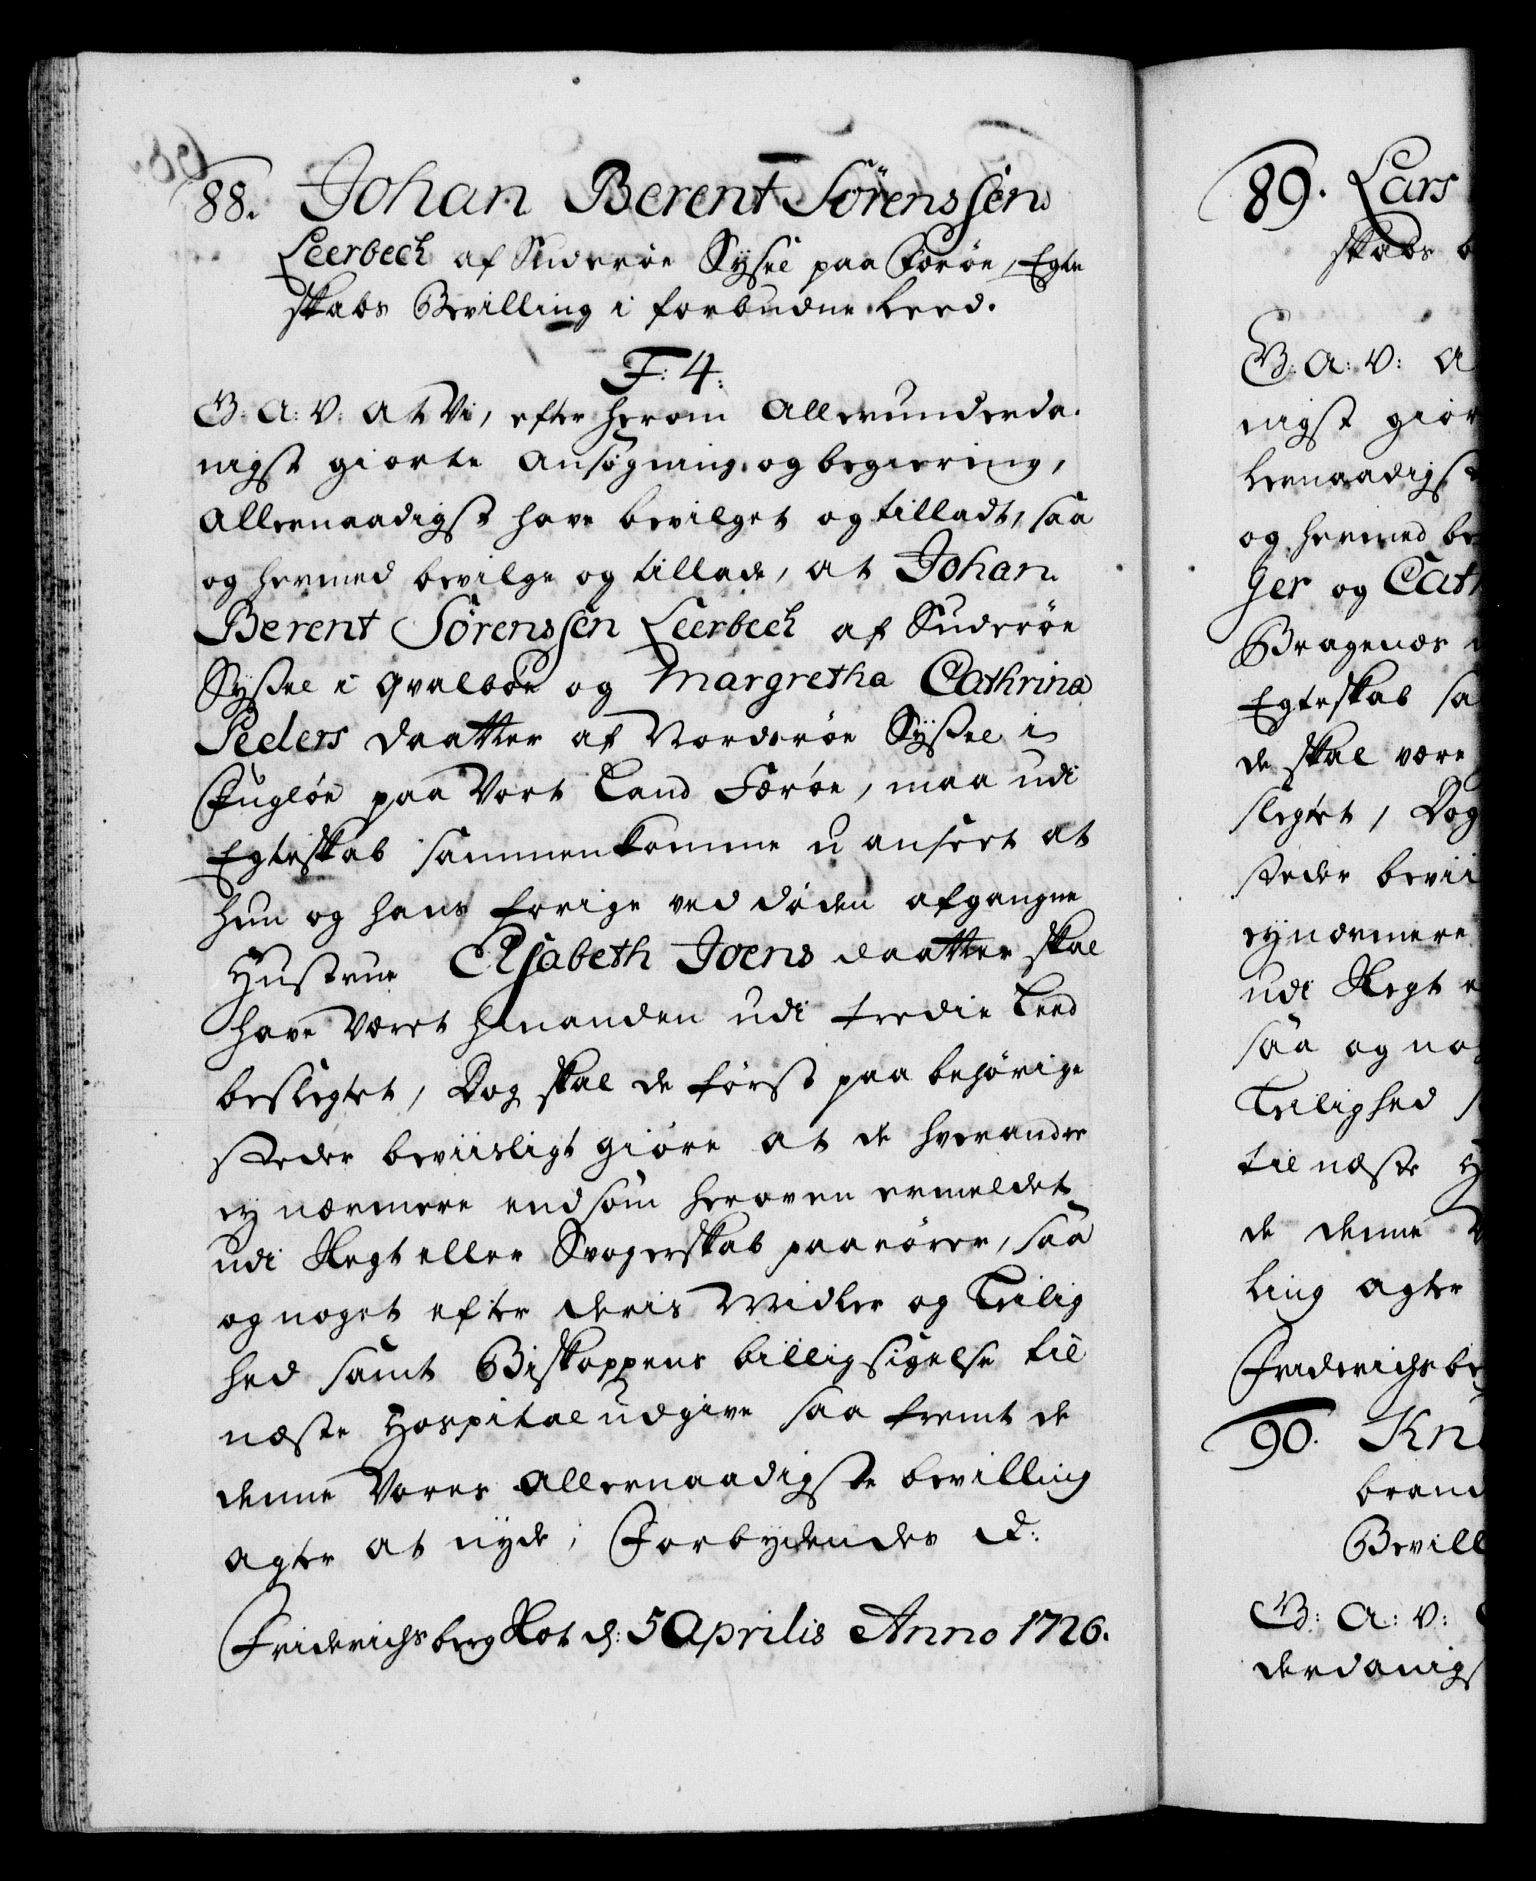 88. Johan Berent Sørenssen
Leerbech af Suderøe Sysel paa Færøe, Egte
skabs Bevilling i forbudne Leed.
F: 4:
G: A: V: At Vi, efter herom Allerunderda-
nigst giorte Ansøgning og begiering,
Allernaadigst have bevilget og tilladt, saa
og hermed bevilge og tillade, at Johan
Berent Sørenssen Leerbech af Suderøe
Syssel i Qvalbøe og Margretha Cathrina
Peders daatter af Norderøe Syssel i
Fugløe paa Vort Land Færøe, maa udi
Egteskab sammenkomme uanseet at
hun og hans forige ved døden afgangne
Hustrue Elsabeth Joens daatter skal
have Været hinanden udi tredie Leed
beslegtet, Dog skal de først paa behørige
stæder beviisligt giøre at de hverandre
ey nærmere end som heroven ermeldet
udi Slegt eller Svogerskab paarører, saa
og noget efter deris Midler og Leilig
hed samt Biskoppens billigsigelse til
næste Hospital udgive saa fremt de
denne Vores Allernaadigste bevilling
agter at nyde, Forbydendes &:
Friderichsberg Slot d: 5 Aprilis Anno 1726.
89. Lars
skabs b
G: A: V: A
nigst giør
lernaadigst
og hermed be
ger og Cath
Bragenæs
Egteskab sa
de skal være
slegtet, Dog
steder bevii
ey nærmere
udi Slegt e
saa og nog
Leilighed s
til næste H
de denne V
ling agter
Friderichsbe
90. Kn
brand
Bevill
G: A: V:
derdanigs